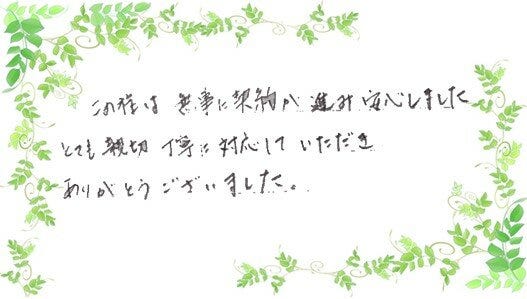 この度は 無事に契約が 進み 安心しました
とても 親切 丁寧に 対応して いただき
ありがとうございました。